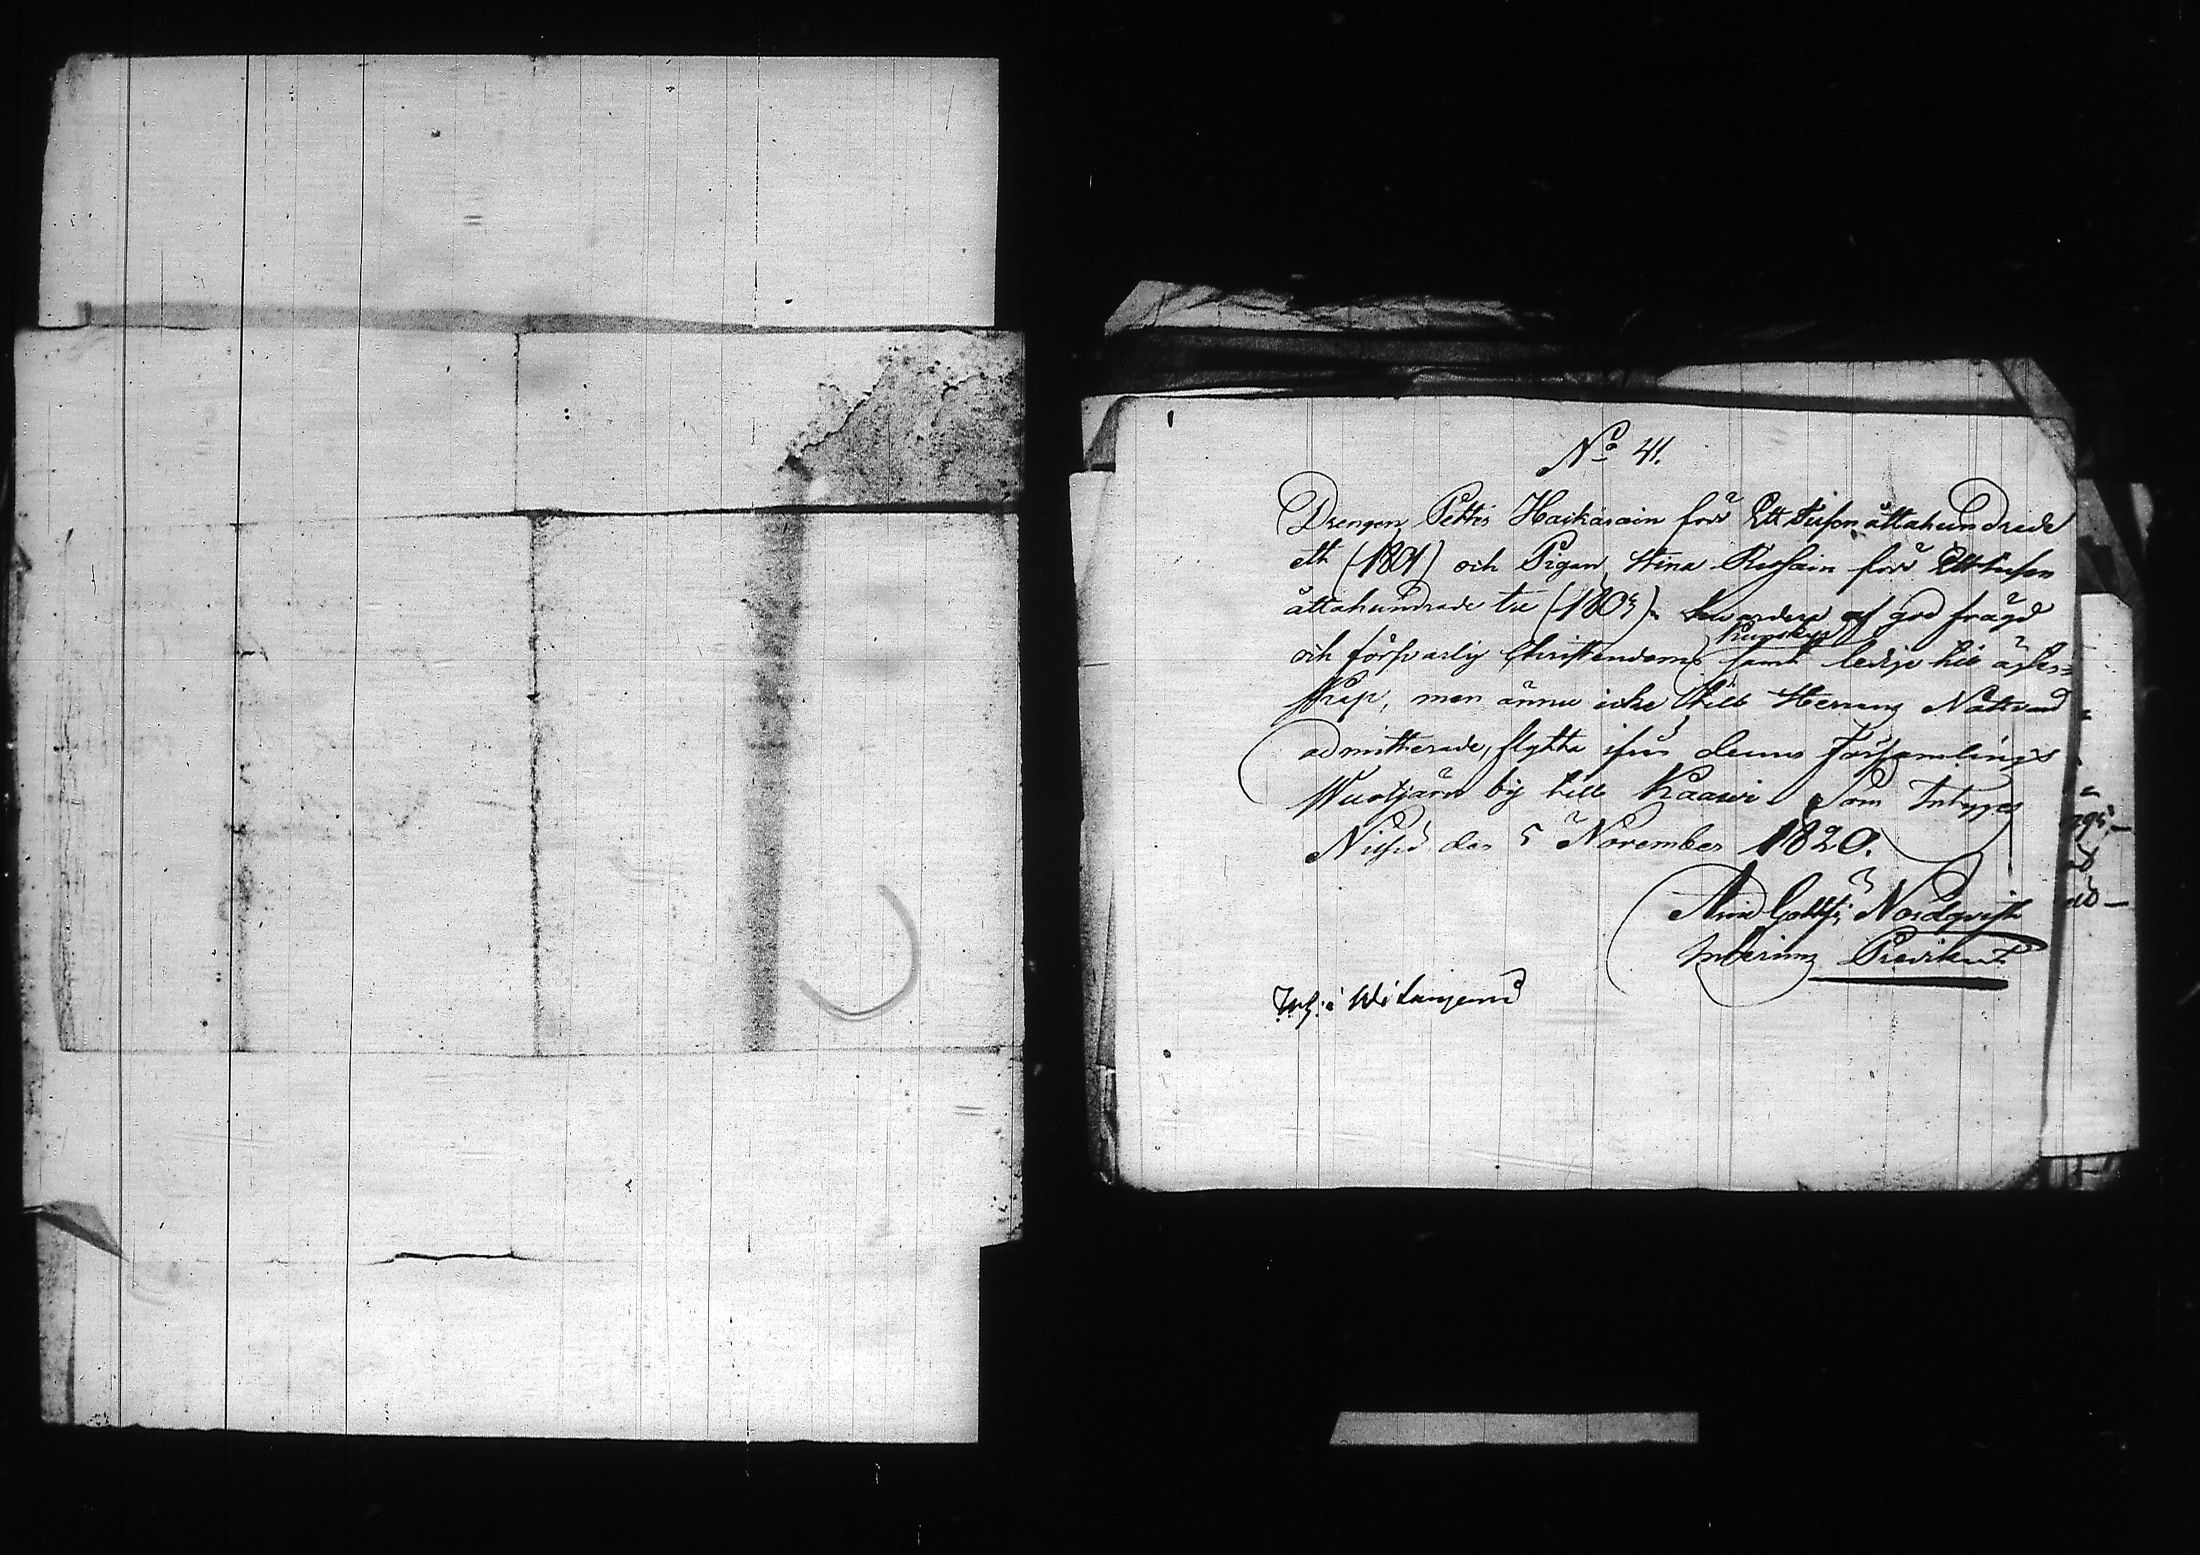 No 41.
Drengen Petter Haikarain född Ett tusen åttahundrade
ett (1801) och Pigan Stina Rissain född Ett tusen
åttahundrade tre (1803) af god frägd
kunskap
och försvarlig Christendoms samt ledige till ägten=
skap, men ännu icke till Herrans Nattvard
admitterade, flytta ifrån denna Församlings
Wuotjärvi by till Kaavi Som Intygas
Nilsiä den 5 November 1820.
Nordqvist
Interims Predikant